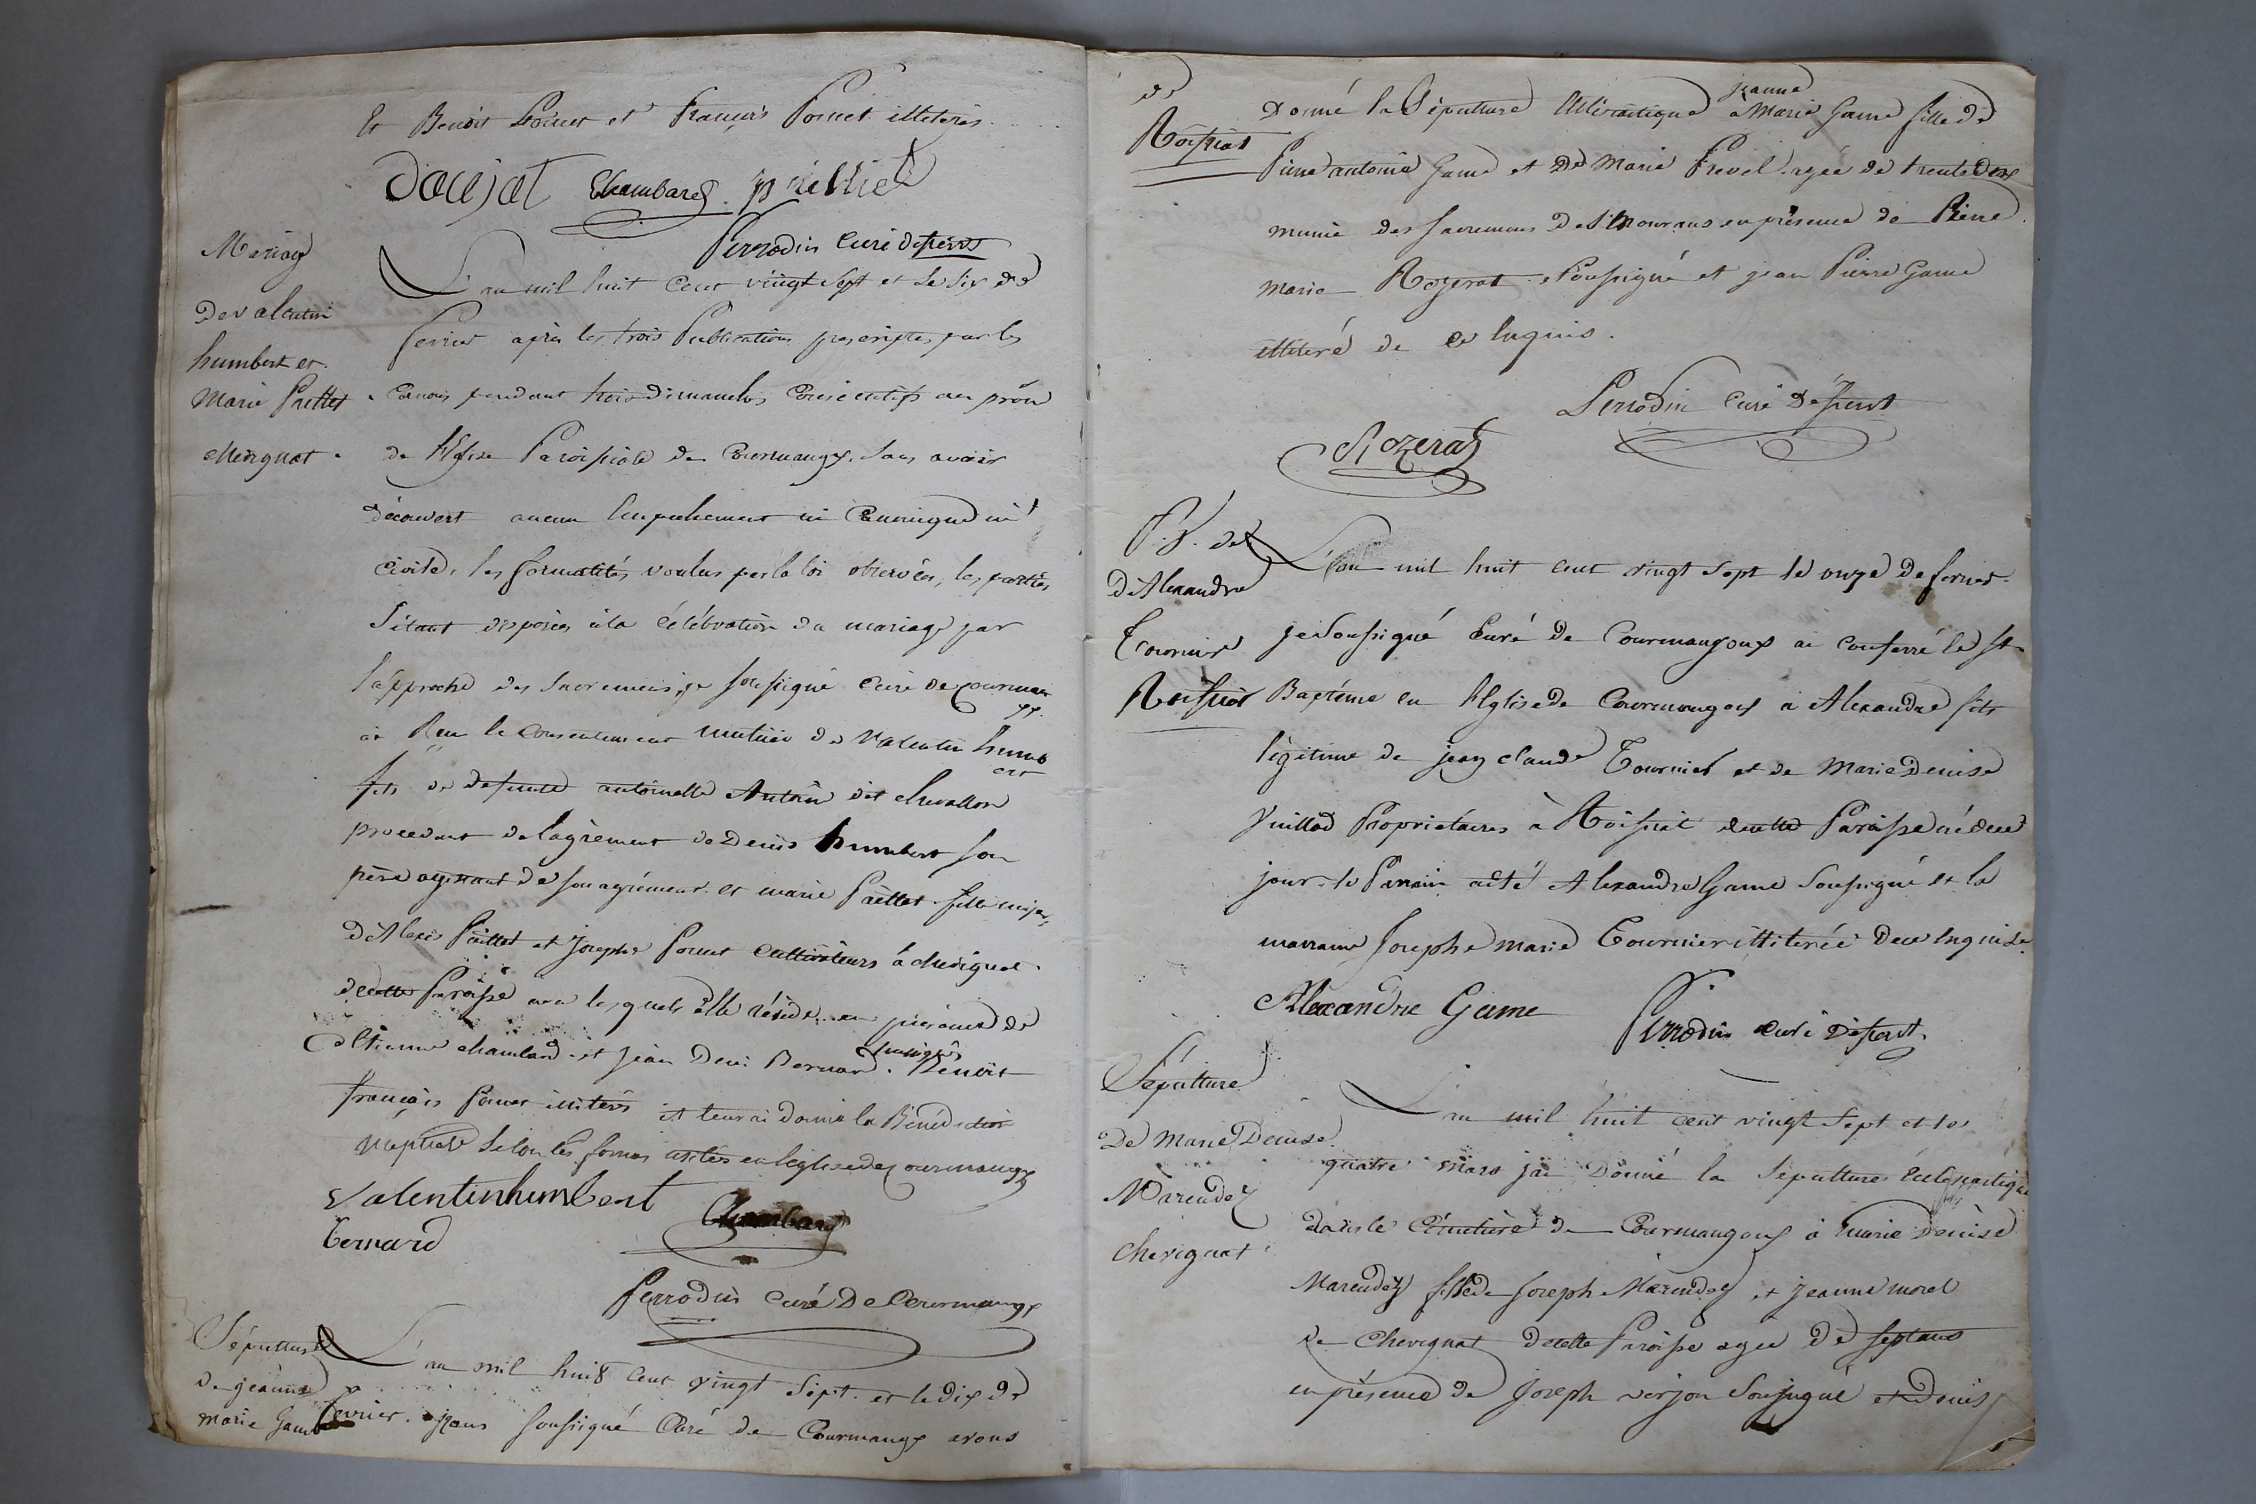 Et Benoit Poncet et François Poncet illiterés
Daujat Chambard
Perrodin Curé desserv
Mariag
De valentin
humbert et
Marie Paillet
chevignat
L'an mil huit cent vingt sept et le six de
fevrier après les trois Publications prescriptes par les
canons pendant trois dimanches consecutifs au prône
de l'Eglise Paroissiale de Courmangx. sans avoir
découvert aucun Empechement ni Canonique ni
civile, les formalités voulus par la loi observées, les parties
s'étant disposées à la célébration du mariage par
l'approche des Sacremens, je soussigné curé de courman
gx.
ai Reçu le consentement mutuel de Valentin humb
ert
fils de defunte antoinette dit chevallon
procedant de l'agrèment de Denis humbert son
père agissant de son agrément et marie Paillet fille majeu
d'Alexis Paillet et Josephe Poncet cultivateurs à chevignat
de cette Paroisse avec lesquels elle réside en présence de
Etienne chambard et Jean Deni Bernard soussignés Benoit
françois Poncet illiterés et leur ai donné la Bénédiction
Nuptiale selon les formes usités en l'église de courmangx
Valentin humbert
Bernard
Chambard
Perrodin curé De Courmangx
Sépulture
de jeanne
marie Game
L'an mil huit cent vingt sept. et le dix de
fevrier. Nous soussigné Curé de Courmangx avons
de
Roissiat
Donné la Sépulture Ecclésiastique à jeanne Marie Game fille de
Pierre antoine Game et De Marie Prevel agée de trente deux
munie des sacremens Des Mourans en présence de Pierre
marie Rozerat soussigné et jean Pierre Game
illiteré de ce Inquis.
Perrodin Curé Desservt
Rozerat
De
D'Alexandre
Tournier
Roissiat
L'an mil huit cent vingt sept le onze de fevrier
je soussigné Curé de Courmangoux ai conferré le st
Baptême en l'Eglise de Courmangoux à Alexandre fils
légitime de jean claude Tournier et de Marie Denise
Vuillod Propriétaires à Roissiat de cette Paroisse né de ce
jour. le Parrain a été Alexandre Game Soussigné et la
marraine Josephe marie Tournier illiterée De ce Inquise.
Alexandre Game
Perrodin curé Desservt.
Sépulture
De Marie Denise
Marendey
chevignat
L'an mil huit cent vingt sept et le
quatre mars jai Donné la Sépulture Ecclésiastique
dans le Cémetière de Courmangoux à marie Denise
Marendey fille de Joseph Marendey et jeanne morel
de Chevignat de cette Paroisse agée De sept ans
en présence de Joseph verjon Soussigné et Denis